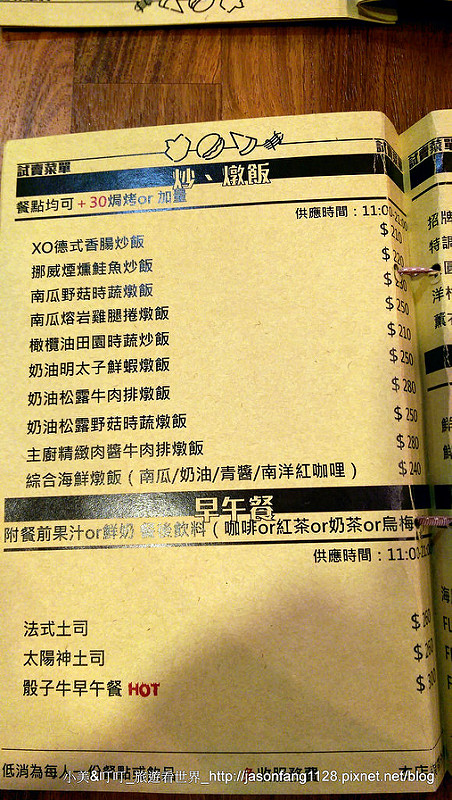 試賣菜單
炒、燉飯
餐點均可+30焗烤or 加量
供應時間：11:00-21:00
XO德式香腸炒飯 $210
挪威煙燻鮭魚炒飯 $220
南瓜野菇時蔬燉飯 $230
南瓜熔岩雞腿捲燉飯 $250
橄欖油田園時蔬炒飯 $210
奶油明太子鮮蝦燉飯 $250
奶油松露牛肉排燉飯 $280
奶油松露野菇時蔬燉飯 $250
主廚精緻肉醬牛肉排燉飯 $280
綜合海鮮燉飯（南瓜/奶油/青醬/南洋紅咖哩） $240
早午餐
附餐前果汁or鮮奶 餐後飲料（咖啡or紅茶or奶茶or烏梅
供應時間：11:0
法式土司 $260
太陽神土司 $260
骰子牛早午餐 HOT $300
低消為每人一份餐點或飲品
收服務費
本店
招牌
特調
洋
小美&叮叮_旅遊看世界_http://jasonfang1128.pixnet.net/blog